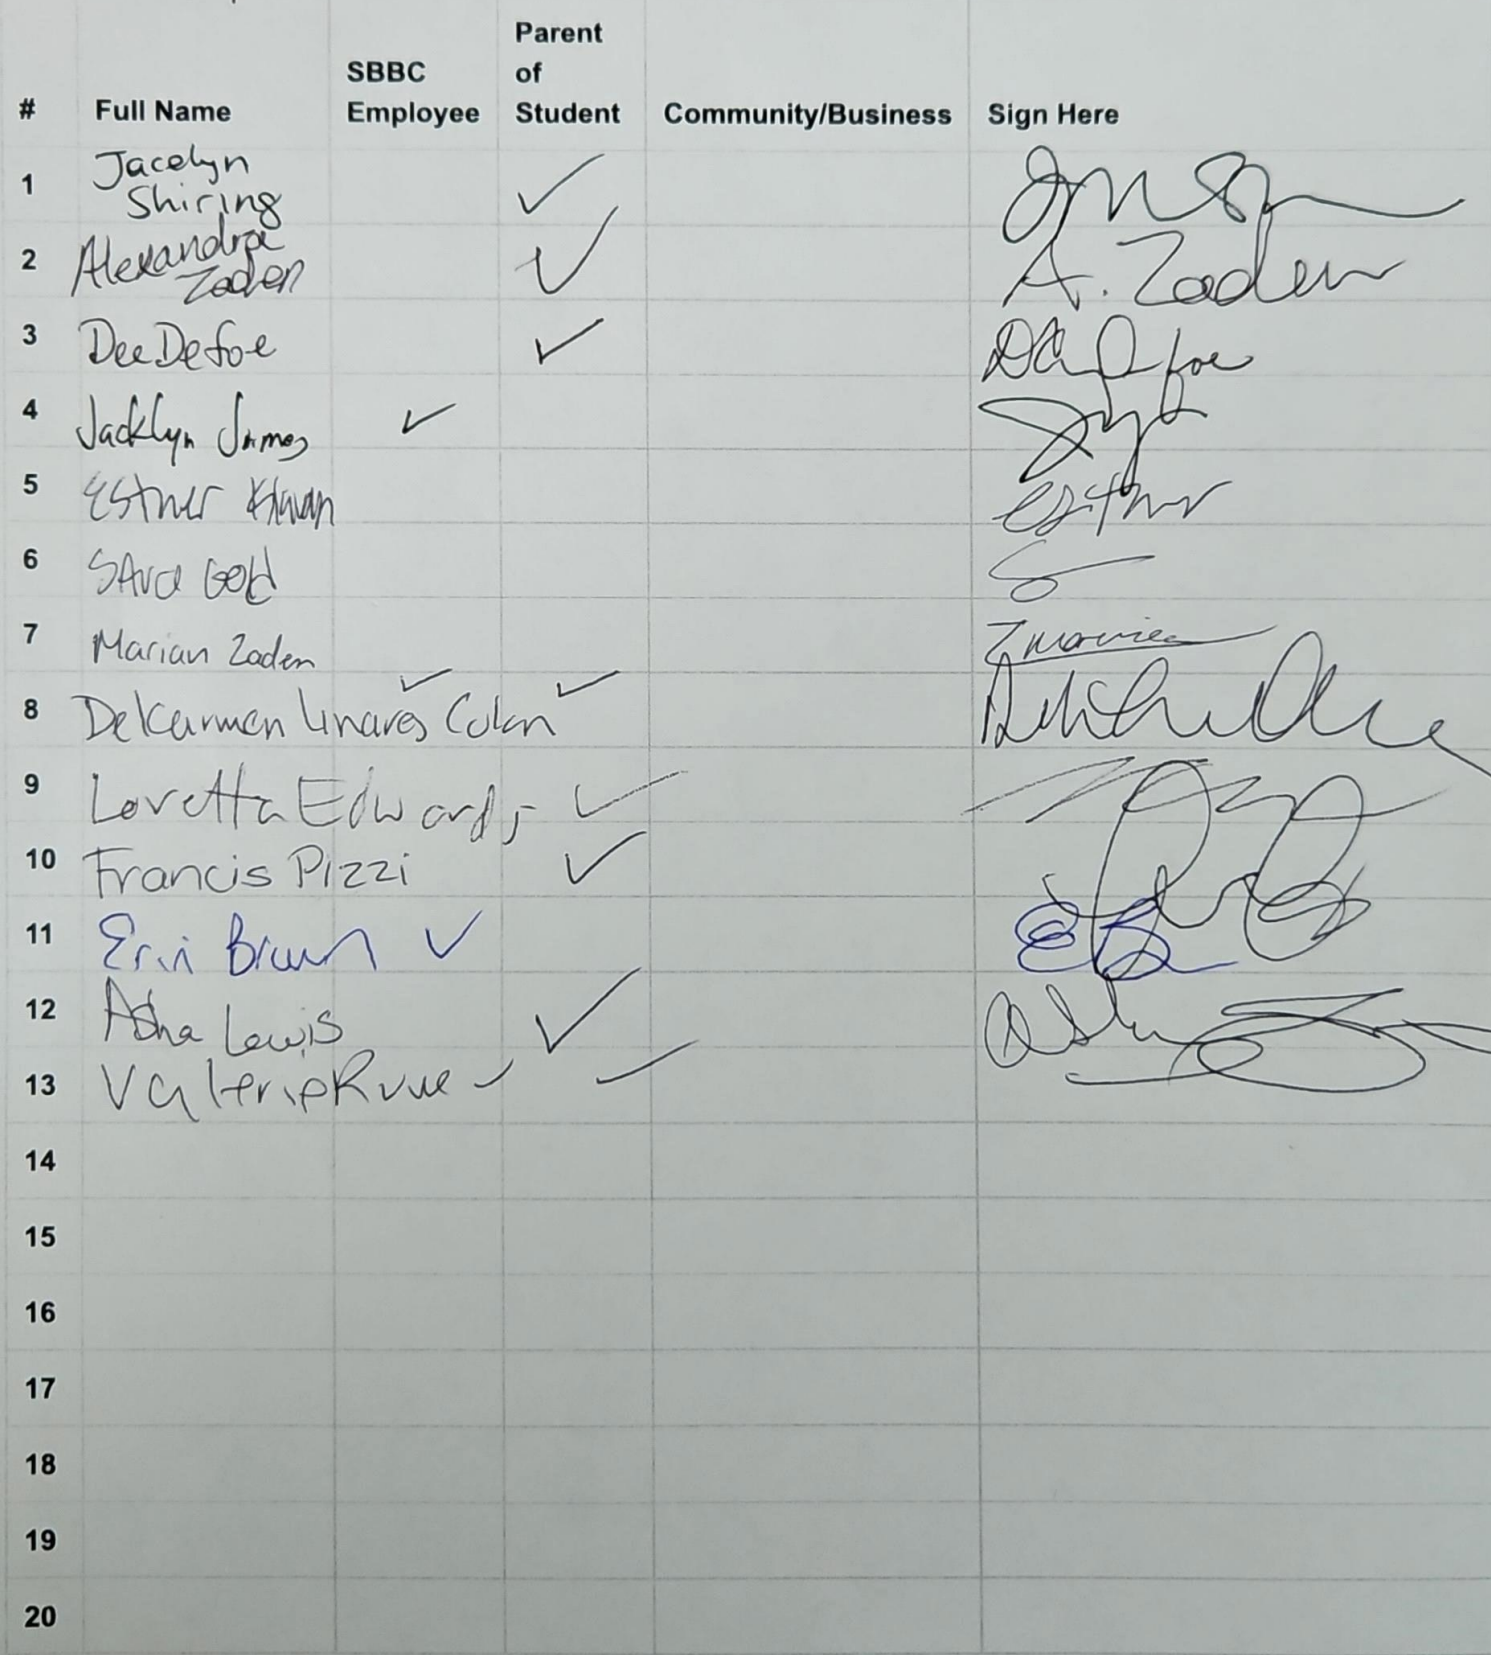 # Full Name SBBC Employee Parent of Student Community/Business Sign Here
1 Jacelyn Shiring ✓
2 Alexandra Zaden ✓ A. Zaden
3 Dee Defoe ✓
4 Jacklyn James ✓
5 Esther Esther
6 Sara Gold
7 Marian Zaden
8 Delcarmen Linares Colon ✓ ✓
9 Loretta Edwards ✓
10 Francis Pizzi ✓
11 Erin Brown ✓ EB
12 Asha Lewis ✓
13 Valerie ✓ ✓
14
15
16
17
18
19
20